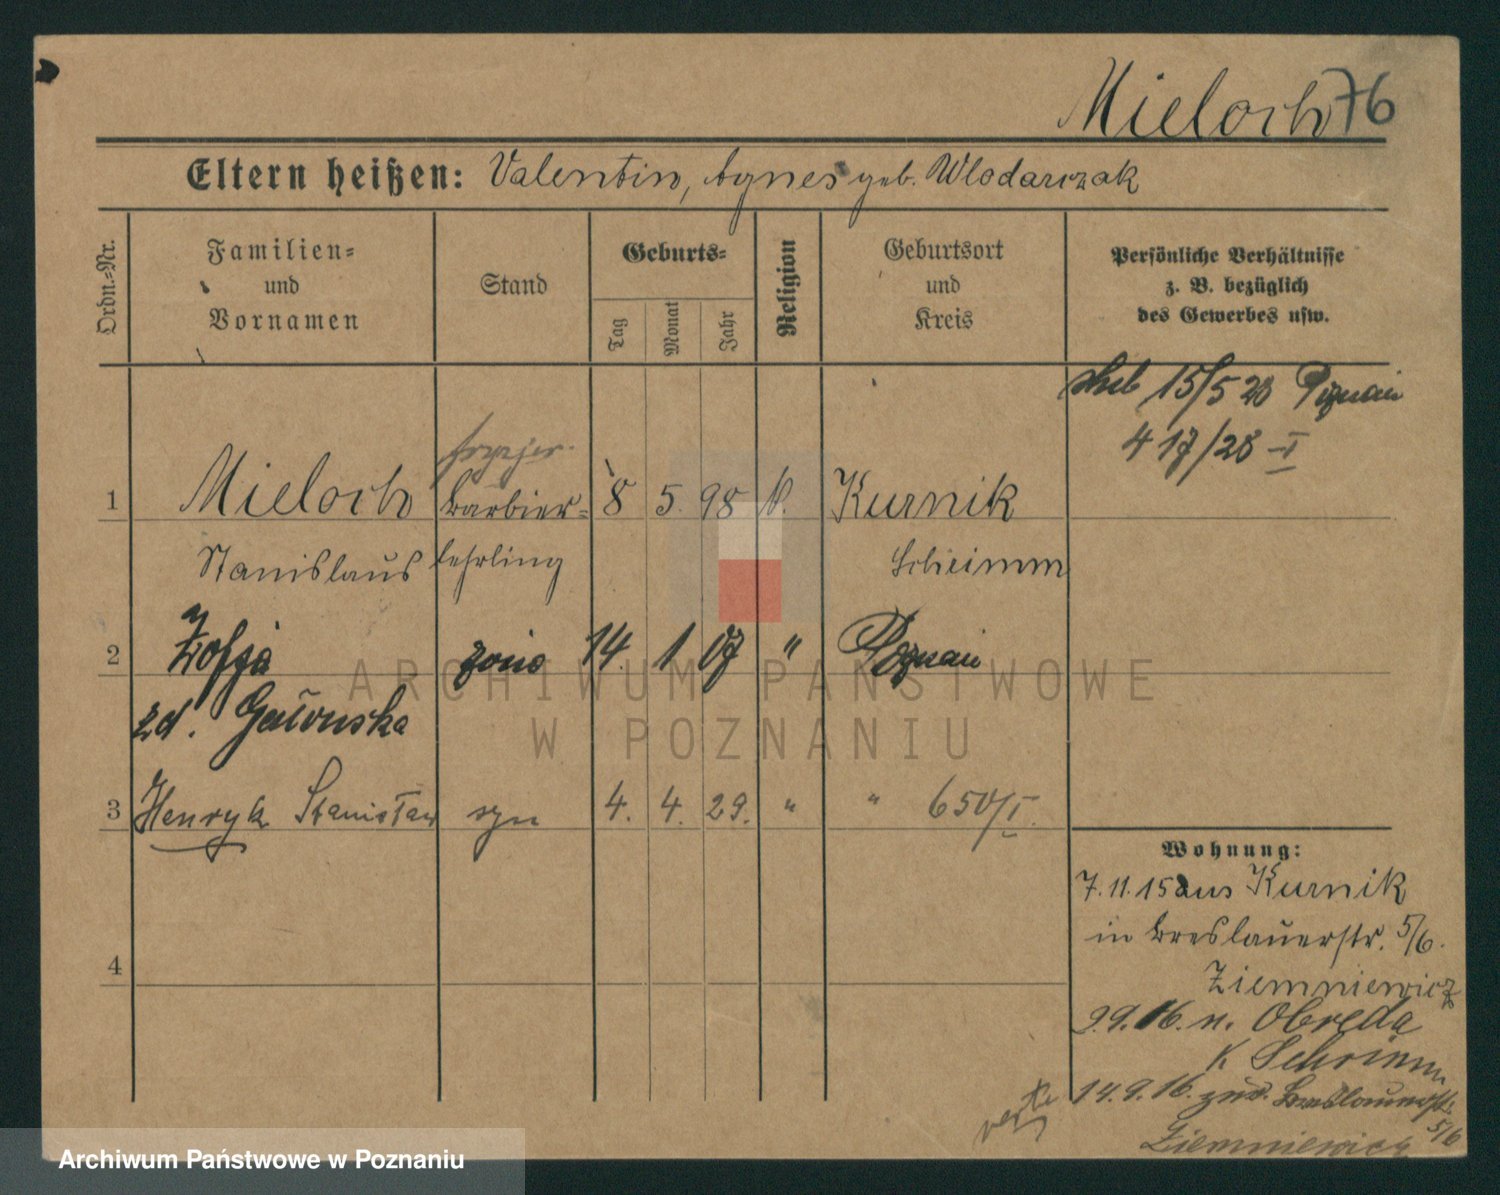 Mieloch 76
Eltern heißen: Valentin, Agnes geb. Wlodarczak
Ordn.=Nr.
Familien=
und
Vornamen
Stand
Geburts=
Tag
Monat
Jahr
Religion
Geburtsort
und
Kreis
Persönliche Verhältnisse
z. B. bezüglich
des Gewerbes usw.
ślub 15/5 28 Poznań
417/28 I
fryzjer
1 Mieloch barbier= 8 5. 98 k. Kurnik
Stanislaus lehrling Schrimm
2 Zofja żona 14. 1. 07 " Poznań
zd.
3 Henryk Stanisław syn 4. 4. 29. " " 650/I.
4
Wohnung:
7.11.15 aus Kurnik
in Breslauerstr. 5/6.
Ziemniewicz
9.9.16. n. Obreda
K Schrimm
14.9.16. zur. Breslauerstr.
5/6
Ziemniewicz
verte
ARCHIWUM PAŃSTWOWE
W POZNANIU
Archiwum Państwowe w Poznaniu